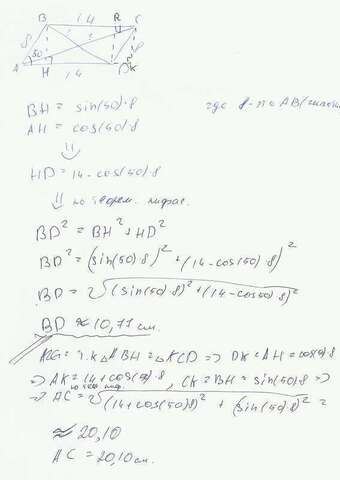 B 14 R C
8 50 8
A H 14 D K
BH = sin(50)·8 где 8-по AB
AH = cos(50)·8
⇓
HD = 14-cos(50)·8
⇓ по теорем. пифаг.
BD² = BH² + HD²
BD² = (sin(50)·8)² + (14-cos(50)·8)²
BD = 2√(sin(50)·8)² + (14-cos(50)·8)²
BD ≈ 10,71 см.
т.к △ABH = △KCD => DK = AH = cos(50)·8
=> AK = 14 + cos(50)·8, CK = BH = sin(50)·8 =>
по теор. пиф.
=> AC = 2√(14+cos(50)·8)² + (sin(50)·8)² =
≈ 20,10
AC = 20,10 см.